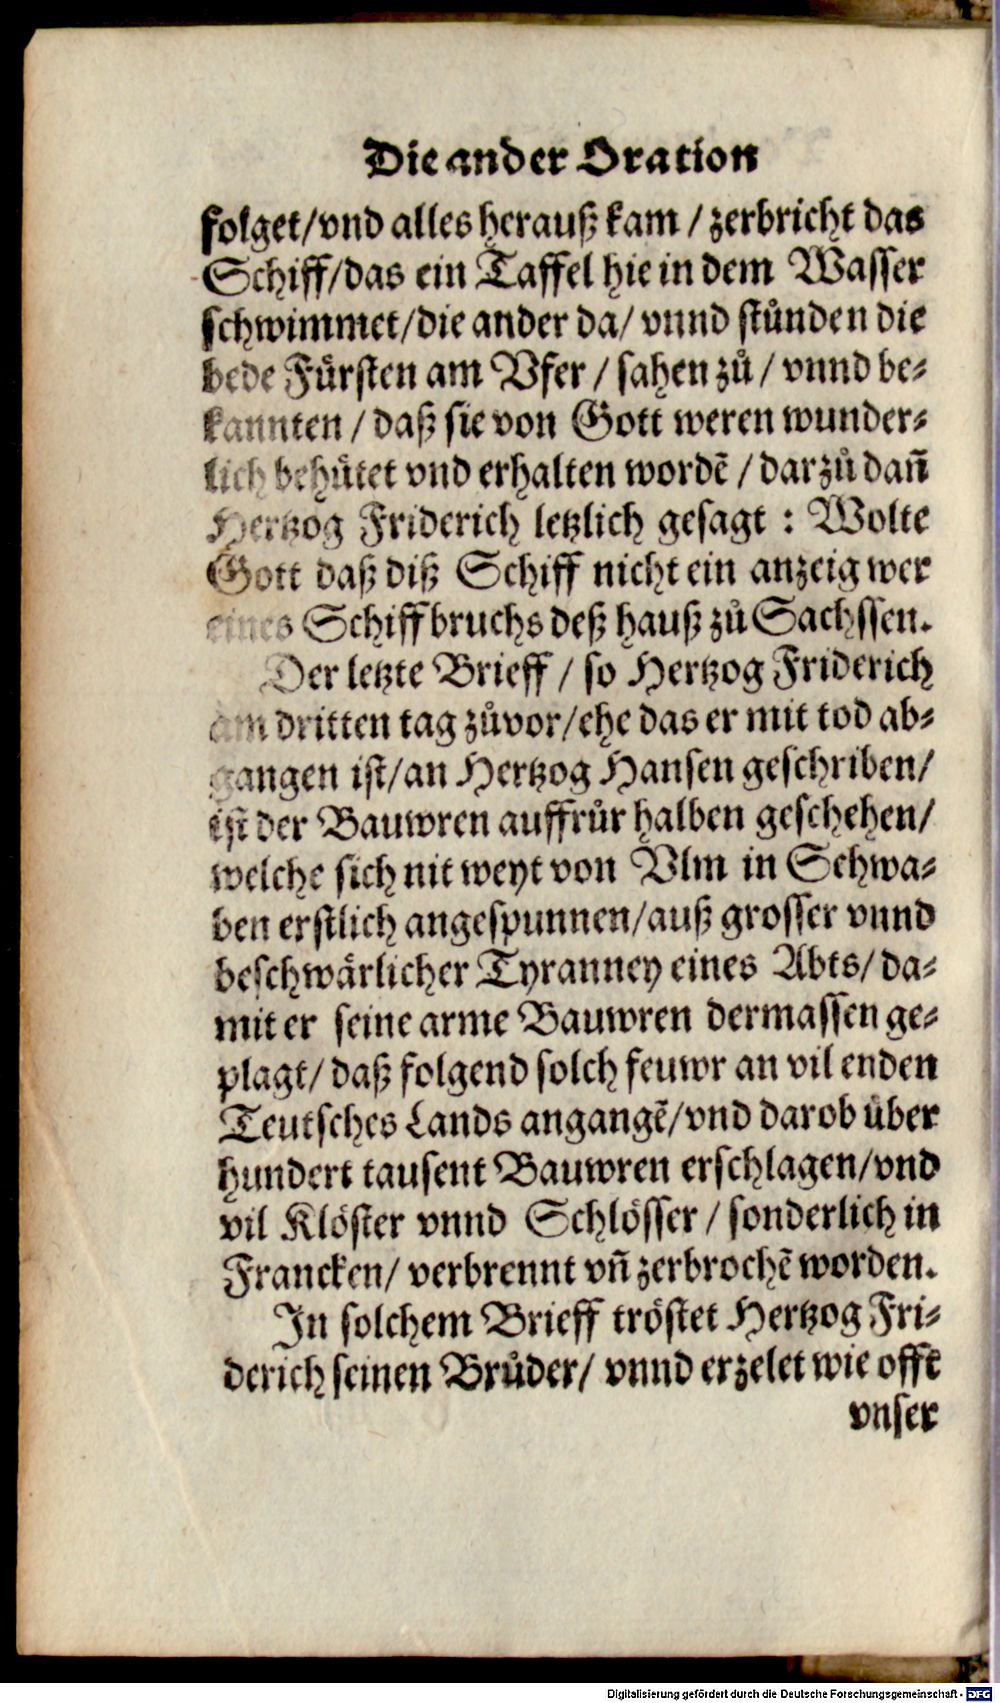 Die ander Oration
folget/vnd alles herauß kam / zerbricht das
Schiff/das ein Taffel hie in dem Wasser
schwimmet/die ander da/ vnnd stůnden die
bede Fürsten am Vfer / sahen zů / vnnd be-
kannten / daß sie von Gott weren wunder-
lich behütet vnd erhalten wordē / darzů dañ
Hertzog Friderich letzlich gesagt : Wolte
Gott daß diß Schiff nicht ein anzeig wer
eines Schiffbruchs deß hauß zů Sachssen.
Der letzte Brieff / so Hertzog Friderich
am dritten tag zůvor/ehe das er mit tod ab-
gangen ist/an Hertzog Hansen geschriben/
ist der Bauwren auffrůr halben geschehen/
welche sich nit weyt von Vlm in Schwa-
ben erstlich angespunnen/auß grosser vnnd
beschwärlicher Tyranney eines Abts/ da-
mit er seine arme Bauwren dermassen ge-
plagt/ daß folgend solch feuwr an vil enden
Teutsches Lands angangē/vnd darob über
hundert tausent Bauwren erschlagen/vnd
vil Klöster vnnd Schlösser / sonderlich in
Francken/ verbrennt vñ zerbrochē worden.
In solchem Brieff tröstet Hertzog Fri-
derich seinen Brůder/ vnnd erzelet wie offt
vnser
Digitalisierung gefördert durch die Deutsche Forschungsgemeinschaft - DFG